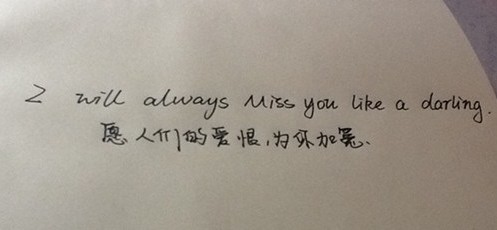 I will always miss you like a darling.
愿人们的爱恨,为你加冕.